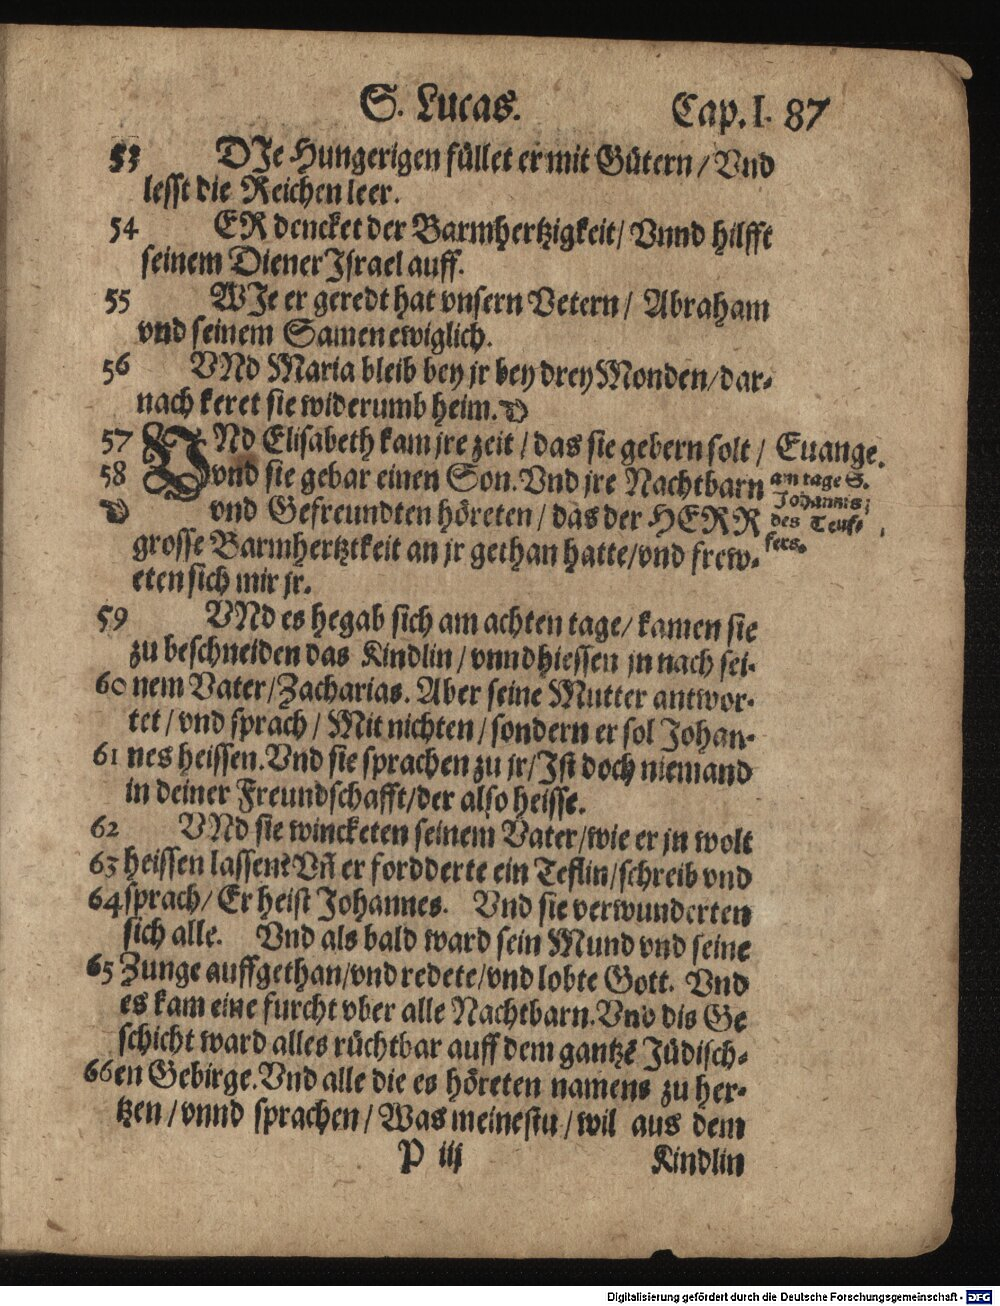 S. Lucas. Cap. I. 87
53 DIe Hungerigen füllet er mit Gütern / Vnd
lesst die Reichen leer.
54 ER dencket der Barmhertzigkeit / Vnnd hilfft
seinem Diener Israel auff.
55 WIe er geredt hat vnsern Vetern / Abraham
vnd seinem Samen ewiglich.
56 VNd Maria bleib bey jr bey drey Monden / dar-
nach keret sie widerumb heim. D
57 VNd Elisabeth kam jre zeit / das sie gebern solt / Euange.
58 vnd sie gebar einen Son. Vnd jre Nachtbarn am tage S.
Johannis;
D vnd Gefreundten höreten / das der HERR des Teuf-
fers.
grosse Barmhertztkeit an jr gethan hatte / vnd frew-
eten sich mir jr.
59 VNd es hegab sich am achten tage / kamen sie
zu beschneiden das Kindlin / vnnd hiessen jn nach sei-
60 nem Vater / Zacharias. Aber seine Mutter antwor-
tet / vnd sprach / Mit nichten / sondern er sol Johan-
61 nes heissen. Vnd sie sprachen zu jr / Ist doch niemand
in deiner Freundschafft / der also heisse.
62 VNd sie wincketen seinem Vater / wie er jn wolt
63 heissen lassen? Vñ er fordderte ein Teflin / schreib vnd
64 sprach / Er heist Johannes. Vnd sie verwunderten
sich alle. Vnd als bald ward sein Mund vnd seine
65 Zunge auffgethan / vnd redete / vnd lobte Gott. Vnd
es kam eine furcht vber alle Nachtbarn. Vnd dis Ge
schicht ward alles rüchtbar auff dem gantzẽ Jüdisch-
66 en Gebirge. Vnd alle die es höreten namens zu her-
tzen / vnnd sprachen / Was meinestu / wil aus dem
P iij Kindlin
Digitalisierung gefördert durch die Deutsche Forschungsgemeinschaft - DFG